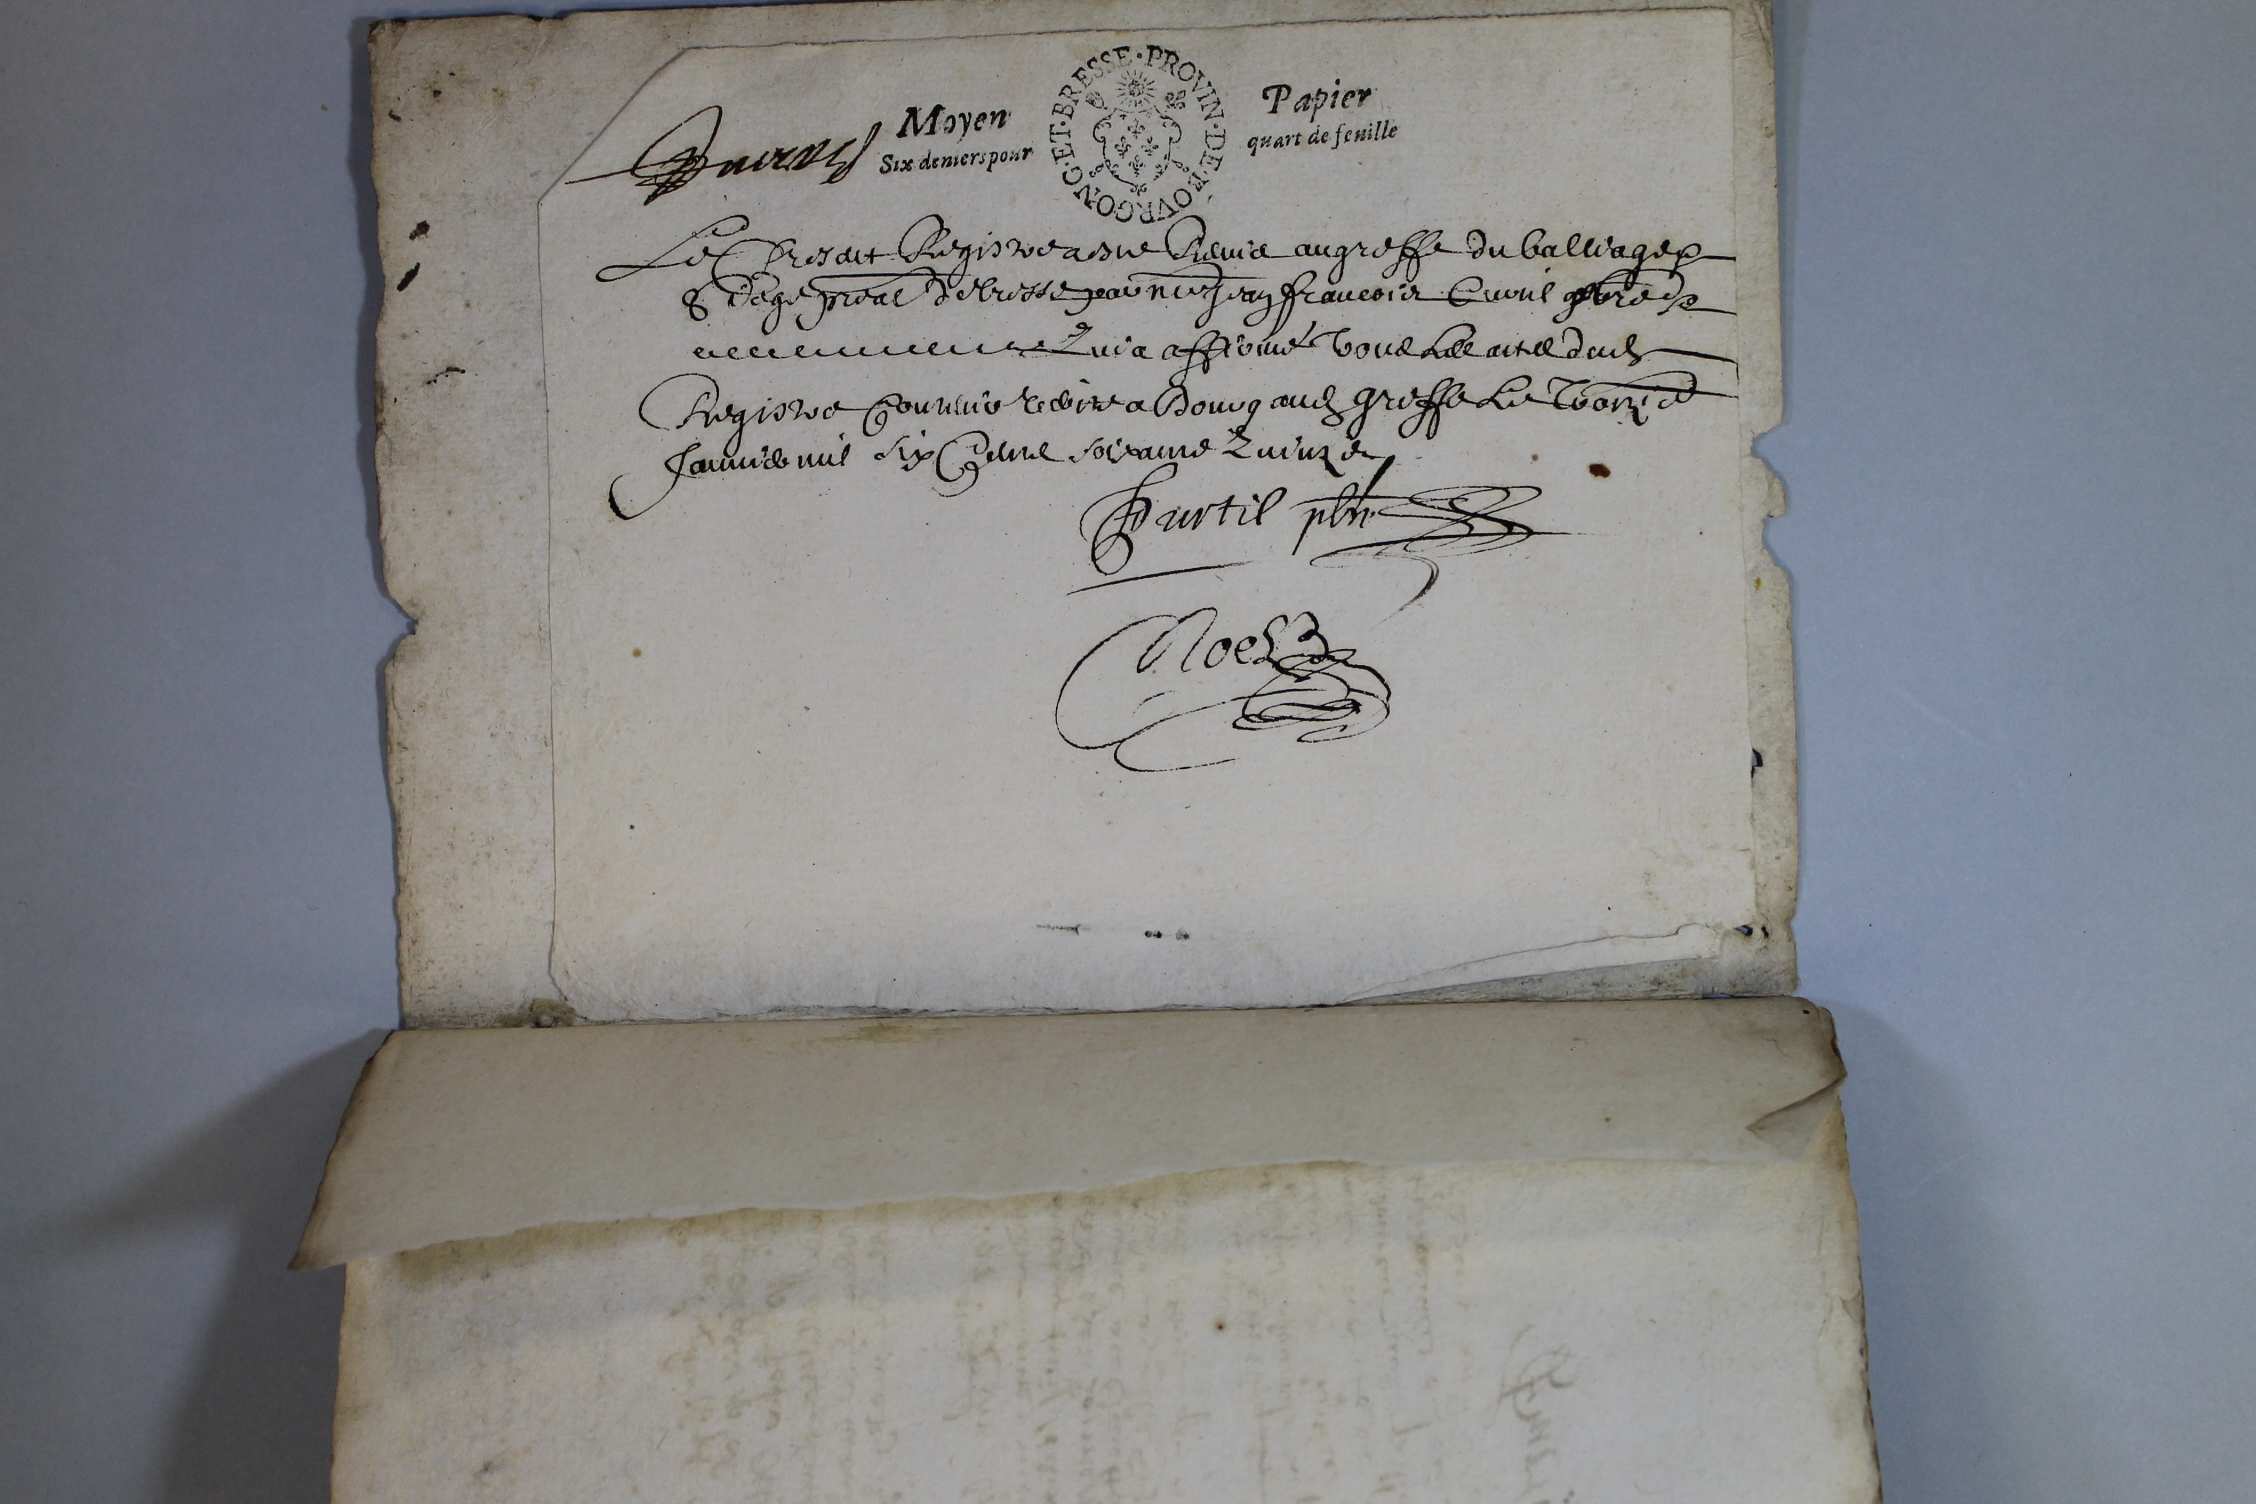 Moyen
Six deniers pour
PROVIN · DE · BOVRGONG · ET · BRESSE ·
Papier
quart de feuille
Le present Registre a esté Remis au greffe du balliage
& siege pnal de bresse par mre Jean francois Curtil pbre
Qui a affirmé tous Les actes dud
Registre Contenir verité a Bourg aud greffe Le
Janvier mil six Cents soixante Quinze
Curtil pbr
Noel